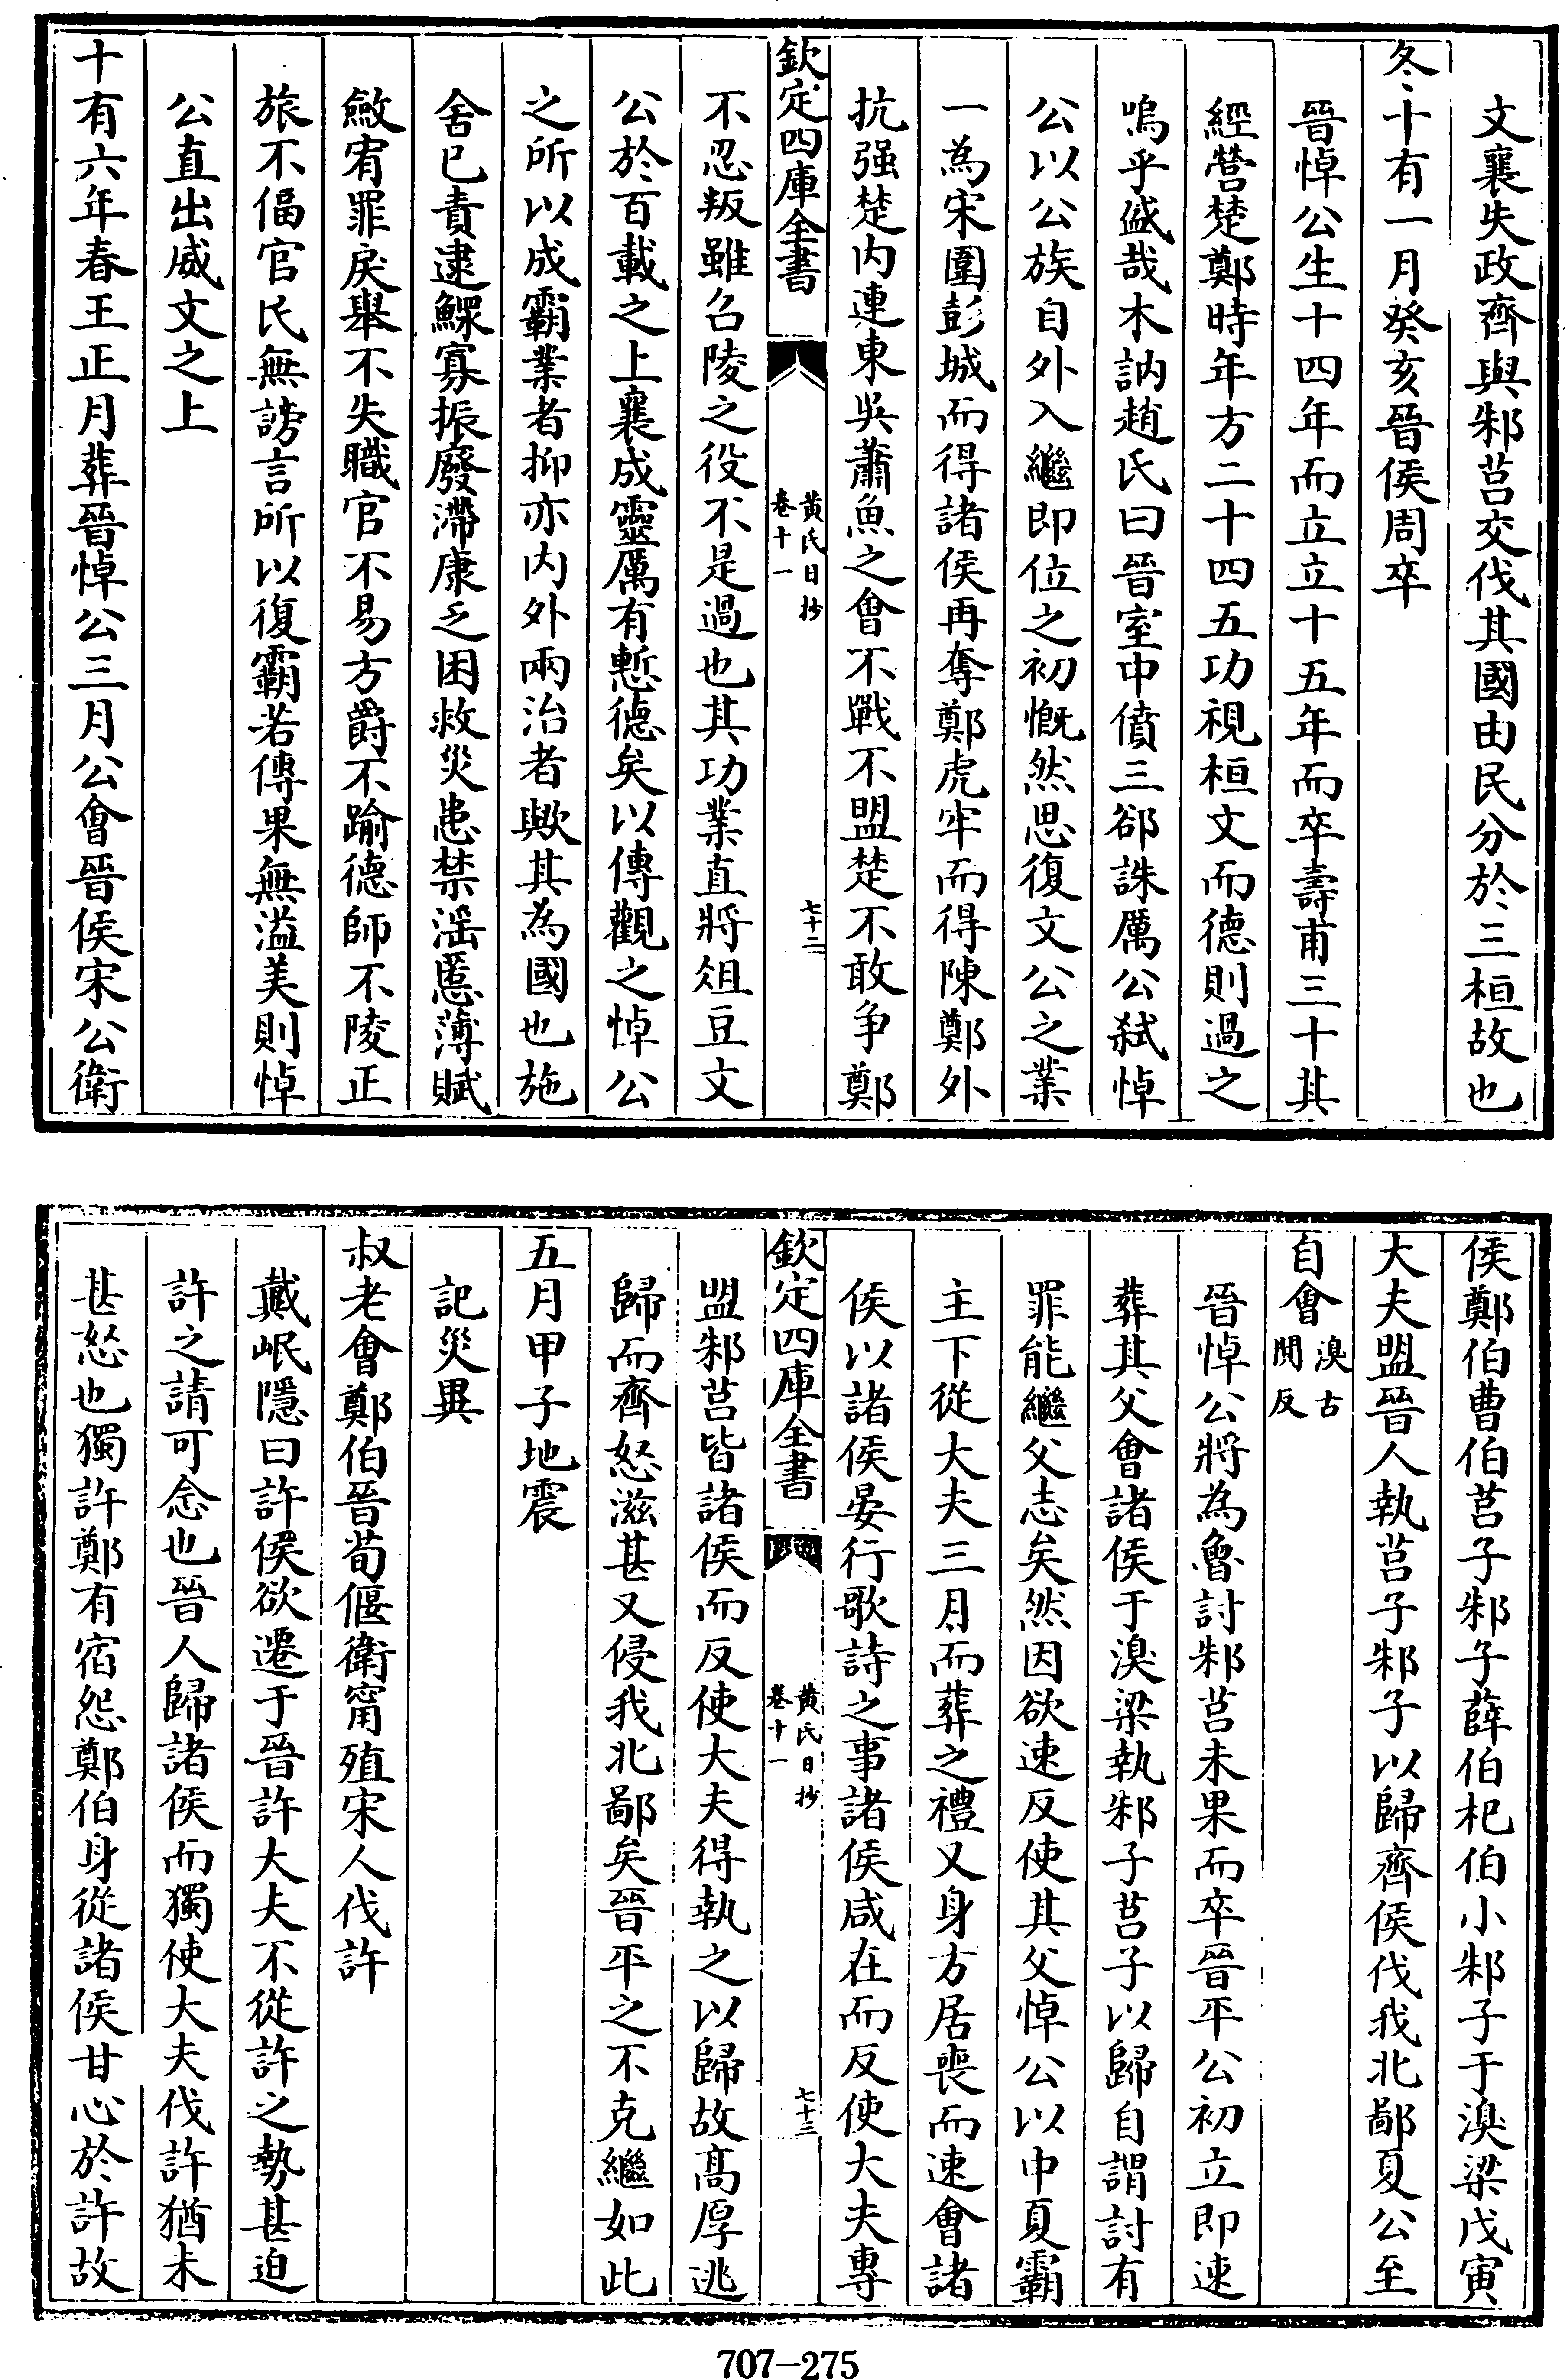 文襄失政齊與邾莒交伐其國由民分於三桓故也
冬十有一月癸亥晉侯周卒
晉悼公生十四年而立立十五年而卒壽甫三十其
經營楚鄭時年方二十四五功視桓文而德則過之
嗚乎盛哉木訥趙氏曰晉室中僨三郤誅厲公弑悼
公以公族自外入繼即位之初慨然思復文公之業
一為宋圍彭城而得諸侯再奪鄭虎牢而得陳鄭外
抗强楚内連東吳蕭魚之會不戰不盟楚不敢争鄭
欽定四庫全書
黄氏日抄
卷十一
七十二
不忍叛雖召陵之役不是過也其功業直將俎豆文
公於百載之上襄成靈厲有慙德矣以傳觀之悼公
之所以成霸業者抑亦内外兩治者歟其為國也施
舍已責逮鰥寡振廢滯康乏困救災患禁滛慝薄賦
斂宥罪戾舉不失職官不易方爵不踰德師不陵正
旅不偪官民無謗言所以復霸若傳果無溢美則悼
公直出威文之上
十有六年春王正月葬晉悼公三月公會晉侯宋公衛
侯鄭伯曹伯莒子邾子薛伯杞伯小邾子于湨梁戊寅
大夫盟晉人執莒子邾子以歸齊侯伐我北鄙夏公至
自會
湨古
閴反
晉悼公將為魯討邾莒未果而卒晉平公初立即速
葬其父會諸侯于湨梁執邾子莒子以歸自謂討有
罪能繼父志矣然因欲速反使其父悼公以中夏霸
主下從大夫三月而葬之禮又身方居喪而速會諸
侯以諸侯晏行歌詩之事諸侯咸在而反使大夫專
欽定四庫全書
黄氏日抄
卷十一
七十三
盟邾莒皆諸侯而反使大夫得執之以歸故髙厚逃
歸而齊怒滋甚又侵我北鄙矣晉平之不克繼如此
五月甲子地震
記災異
叔老會鄭伯晉荀偃衛甯殖宋人伐許
戴岷隱曰許侯欲遷于晉許大夫不從許之勢甚迫
許之請可念也晉人歸諸侯而獨使大夫伐許猶未
甚怒也獨許鄭有宿怨鄭伯身從諸侯甘心於許故
707-275